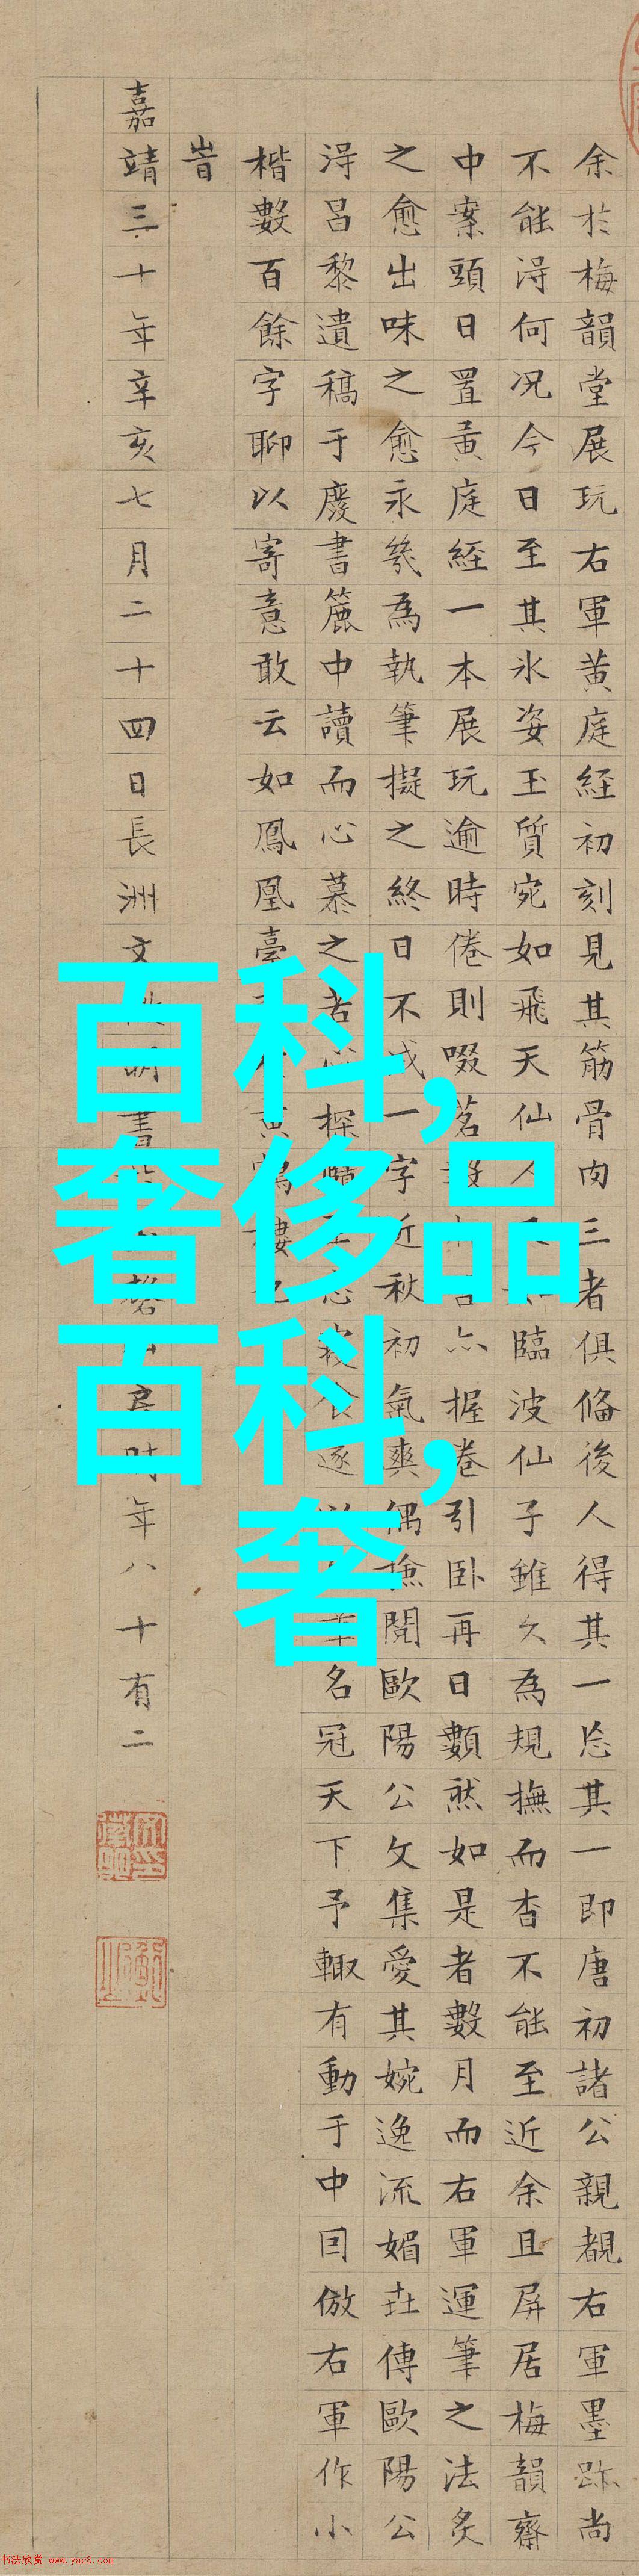 余於梅韻堂展玩右軍黃庭経初刻見其筋骨肉三者俱俻後人得其一忘其一即唐初諸公親覩右軍墨跡尚
不能淂何况今日至其氷姿玉質宛如飛天仙人臨波仙子雖久為規撫而杳不能至近余且屏居梅韻齋
中案頭日置黃庭経一本展玩逾時倦則啜茗數握卷引卧再日數然如是者數月而右軍運筆之法炙
之愈出味之愈永為執筆擬之終日不成一字近秋初氣爽偶撿閱歐陽公文集愛其婉逸流媚傳歐陽公
淂呂黎遺稿于廢書簏中讀而心慕之苦心探賾忘寢食遂名冠天下予輙有動于中囙倣右軍作小
楷數百餘字聊以寄意敢云如鳳凰臺黃鶴樓也
旹
嘉靖三十年辛亥七月二十四日長洲文徵明書磬山房時年八十有二
百科,
奢侈品
百科,
奢
书法欣赏 www.yac8.com